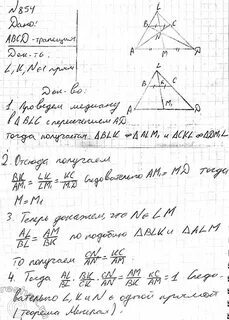 N 854
Дано:
ABCD-трапеция
Док-ть:
L, K, N ∈ 1 прям
Док-во:
1. Проведем медиану
в △BLC с пересечением AD
тогда получается △BLK ∾ △ALM₁ и △CKL ∾ △DM₁L
2. Отсюда получаем
BK/AM₁ = LK/LM₁ = KC/M₁D следовательно AM₁ = M₁D тогда
M = M₁
3. Теперь докажем, что N ∈ LM
AL/BL = AM/BK по подобию △BLK и △ALM
То получаем CN/AN = KC/AM
4. Тогда AL/BL · BK/CK · CN/AN = AM/BK · KC/AM = 1 Следо-
вательно L, K и N ∈ одной прямой
(теорема Менелая).
B
L
C
K
N
A
M
D
L
B
K
C
A
M₁
D